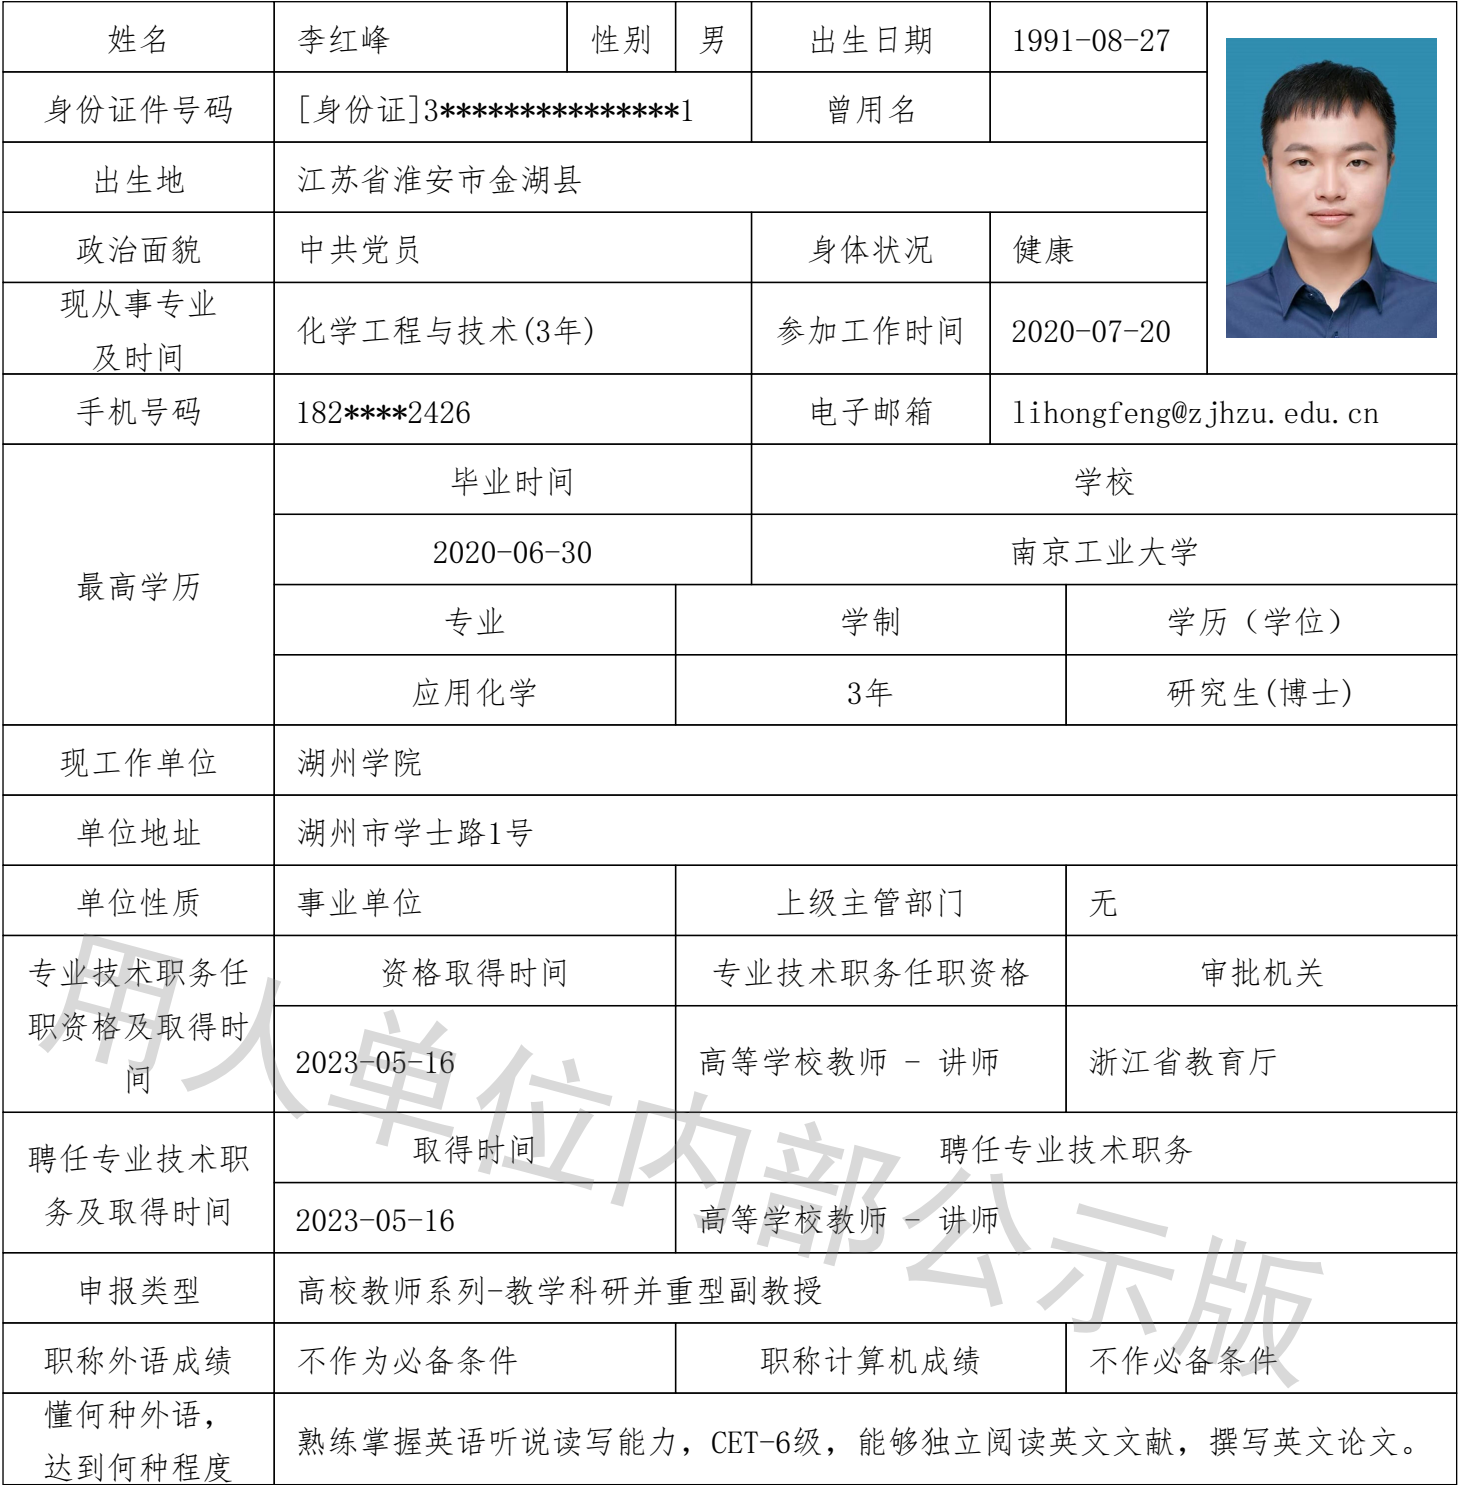 姓名 李红峰 性别 男 出生日期 1991-08-27
身份证件号码 [身份证]3***************1 曾用名
出生地 江苏省淮安市金湖县
政治面貌 中共党员 身体状况 健康
现从事专业
及时间 化学工程与技术(3年) 参加工作时间 2020-07-20
手机号码 182****2426 电子邮箱 lihongfeng@zjhzu.edu.cn
最高学历
毕业时间 学校
2020-06-30 南京工业大学
专业 学制 学历（学位）
应用化学 3年 研究生(博士)
现工作单位 湖州学院
单位地址 湖州市学士路1号
单位性质 事业单位 上级主管部门 无
专业技术职务任
职资格及取得时
间
资格取得时间 专业技术职务任职资格 审批机关
2023-05-16 高等学校教师 - 讲师 浙江省教育厅
聘任专业技术职
务及取得时间
取得时间 聘任专业技术职务
2023-05-16 高等学校教师 - 讲师
申报类型 高校教师系列-教学科研并重型副教授
职称外语成绩 不作为必备条件 职称计算机成绩 不作必备条件
懂何种外语，
达到何种程度 熟练掌握英语听说读写能力，CET-6级，能够独立阅读英文文献，撰写英文论文。
用人单位内部公示版